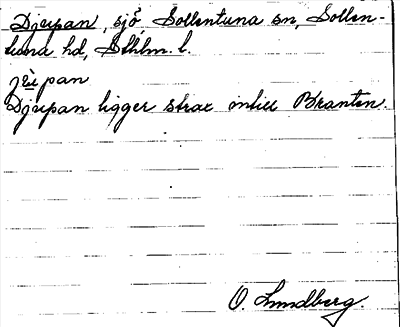 Djupan, sjö, Sollentuna sn, Sollen-
tuna hd, Sthlm. l.
jùpan
Djupan ligger strax intill Branten.
O. Lundberg